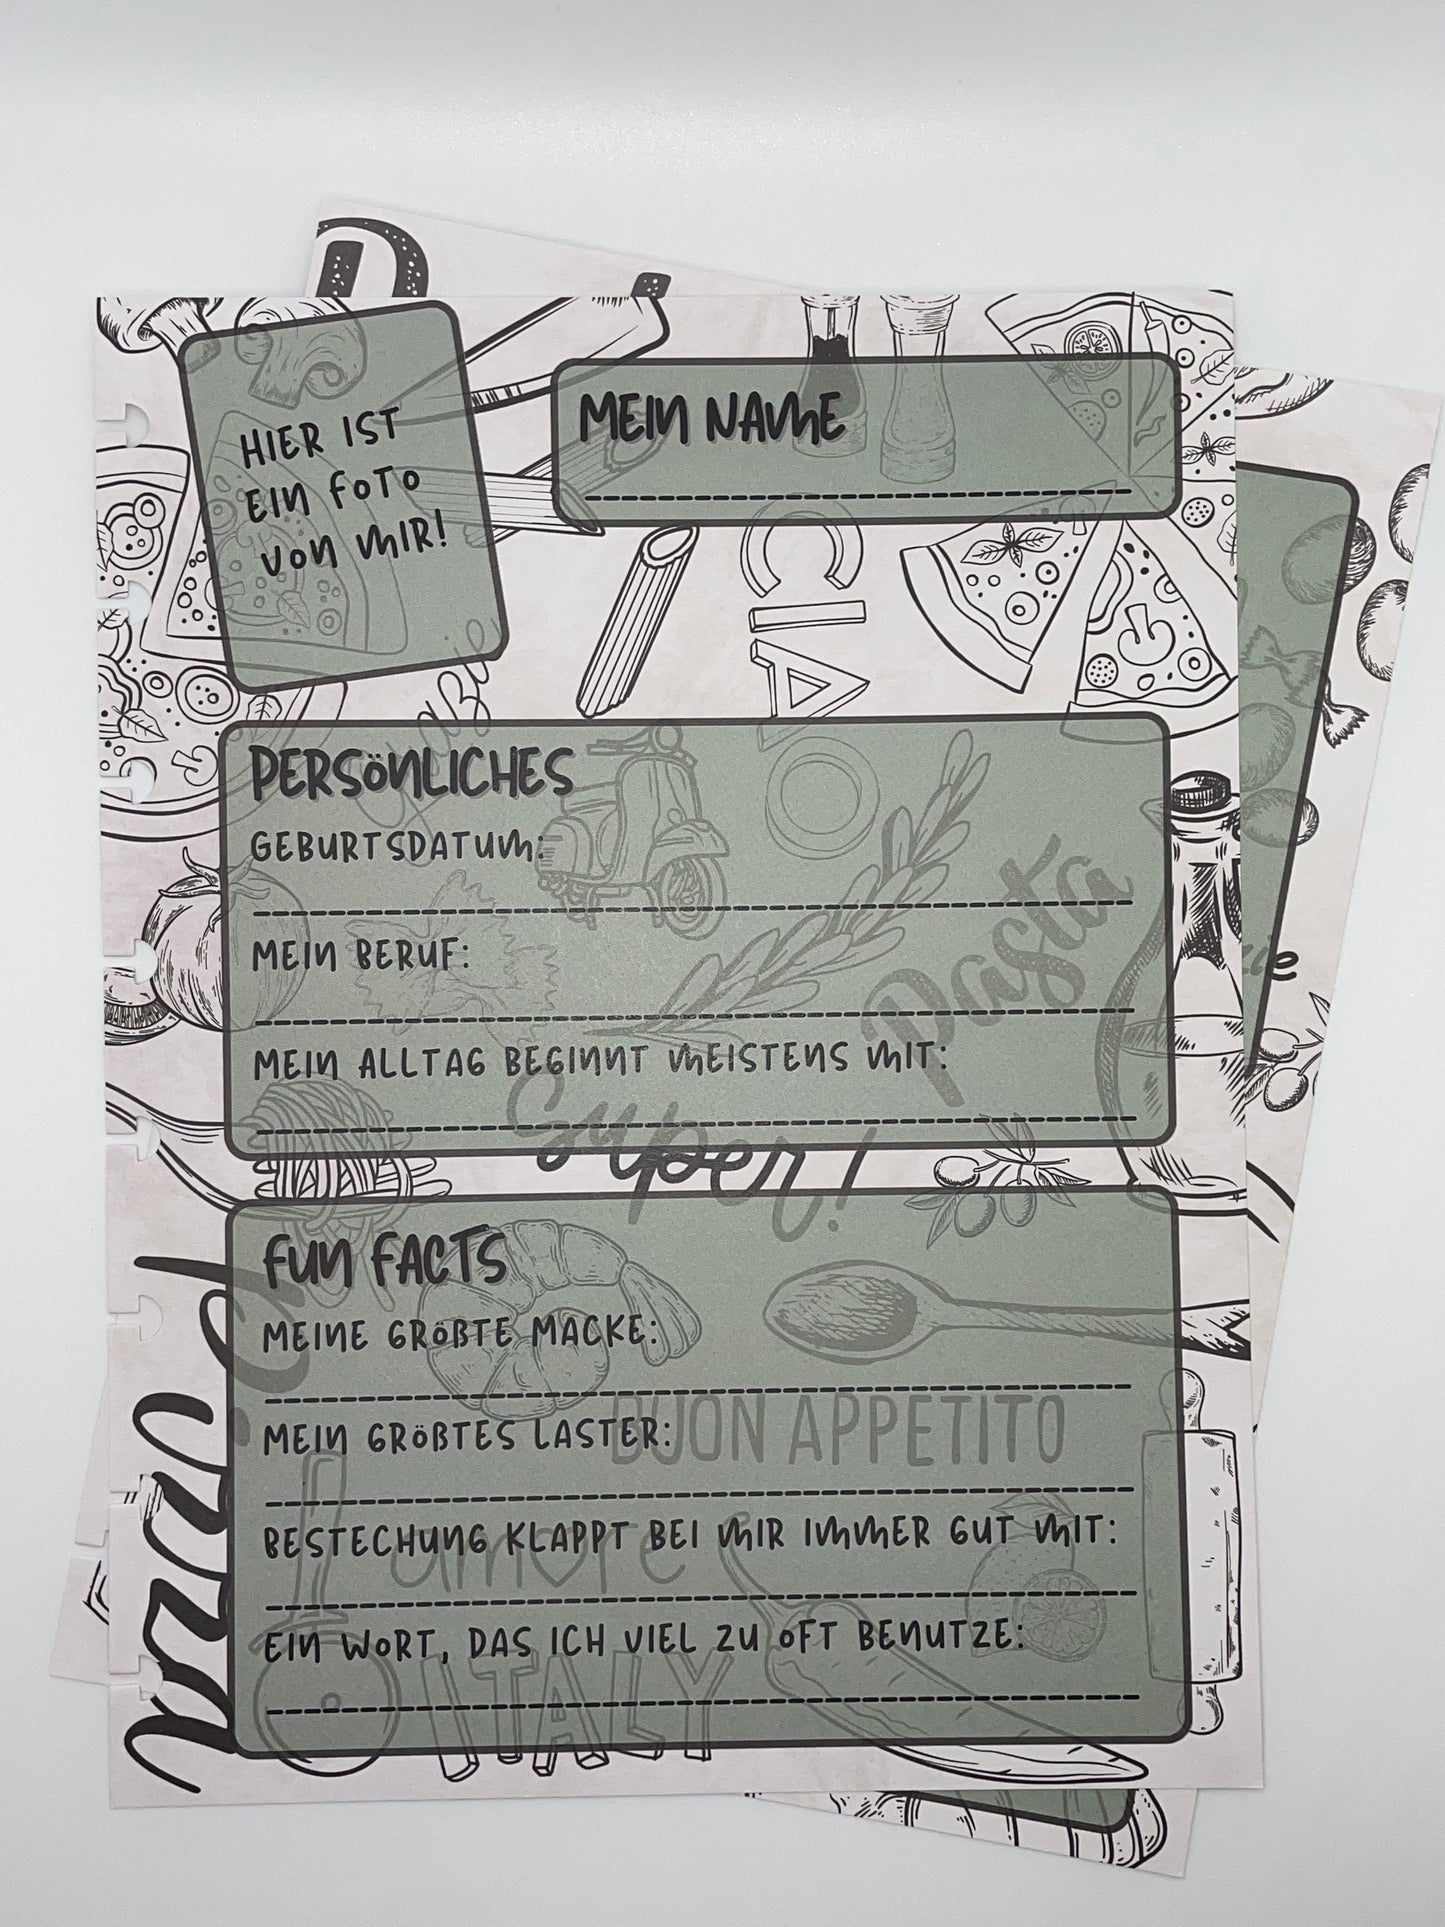 HIER IST
EIN FOTO
VON MIR!
MEIN NAME
CIAO
Grazie
PERSÖNLICHES
GEBURTSDATUM:
MEIN BERUF:
Pasta
MEIN ALLTAG BEGINNT MEISTENS MIT:
super!
FUN FACTS
MEINE GRÖßTE MACKE:
MEIN GRÖßTES LASTER:
BUON APPETITO
BESTECHUNG KLAPPT BEI MIR IMMER GUT MIT:
amore
EIN WORT, DAS ICH VIEL ZU OFT BENUTZE:
ITALY